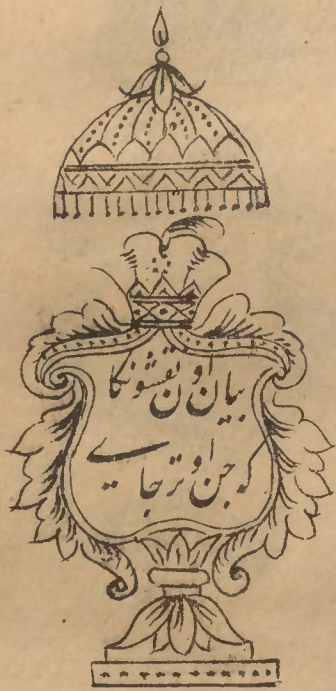 بیان اون نقشونکا
کہ جن اوترجاے